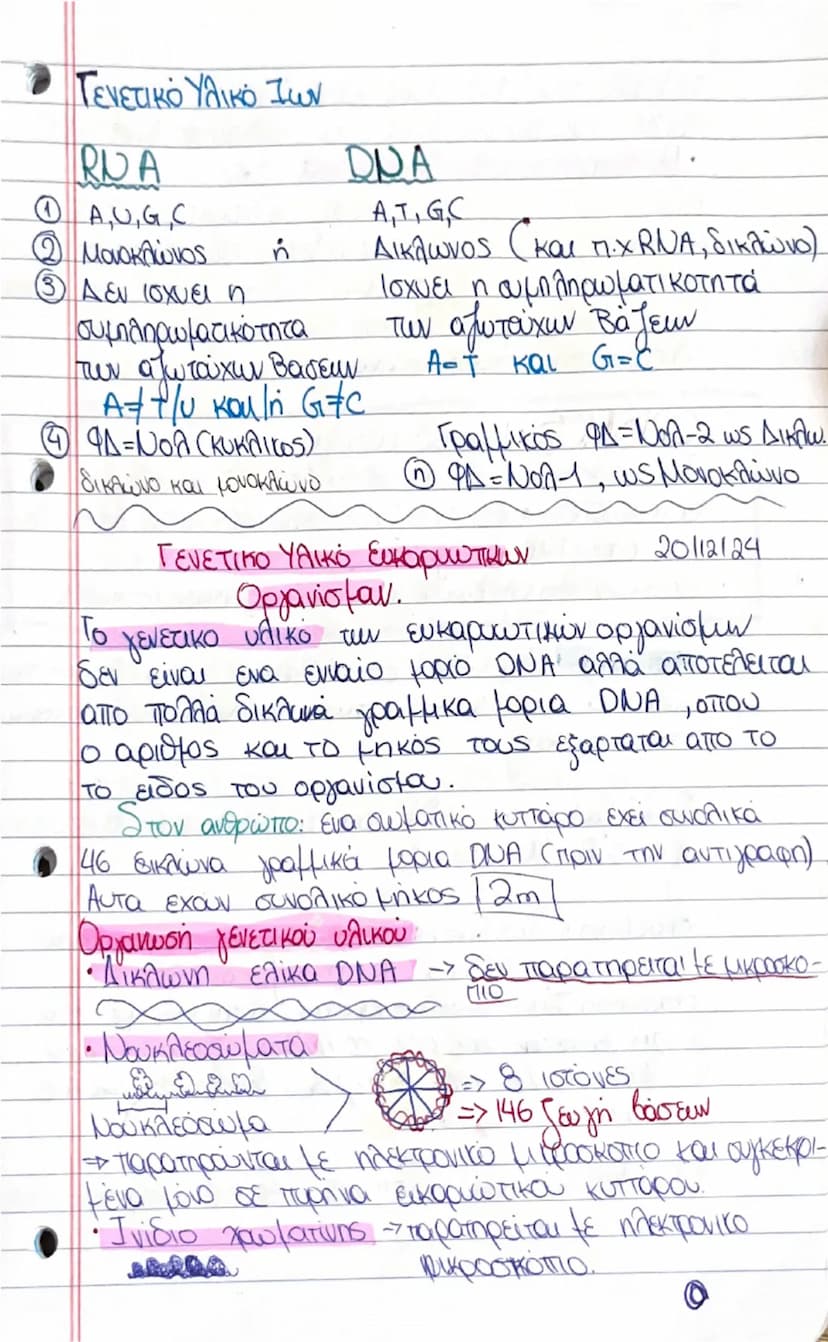 Γενετικό Υλικό Ιων
RNA DNA
① A,U,G,C A,T,G,C
② Μονοκλώνος ή Δικλωνος (και π.χ RNA, δικλώνο)
③ Δεν ισχυει η Ισχυει η συμπληρωματικοτητά
συμπληρωματικότητα των αζωτούχων Βάζεων
των αζωτούχων Βασεων A=T και G=C
A≠T/U και/ή G≠C
④ ΦΔ=Νολ (κυκλικος) Γραμμικός ΦΔ=Νολ-2 ως Δικλω.
δικλώνο και μονοκλώνο ή ΦΔ=Νολ-1, ως Μονοκλώνο
Γενετικο Υλικό Ευκαρυωτικων 20/12/24
Οργανίσμων.
Το γενετικο υλικό των ευκαρυωτικών οργανίσμων
δεν είναι ενα ενιαίο μοριο DNA αλλά αποτελειται
απο πολλά δικλωνά γραμμικα μορια DNA , οπου
ο αριθμος και το μηκός τους εξαρταται απο το
το ειδος του οργανίσμου.
Στον ανθρωπο: ενα σωματικό κυτταρο εχει συνολικά
46 δικλωνα γραμμικά μορια DNA (πριν την αντιγραφη)
Αυτα εχουν συνολικό μήκος 2m
Οργανωσή γενετικού υλικού
• Δικλωνη ελικα DNA → δεν παρατηρειται με μικροσκο-
πιο
• Νουκλεοσωματα
=> 8 ιστόνες
Νουκλεόσωμα => 146 ζευγή βάσεων
=> παρατηρούνται με ηλεκτρονικό μικροσκοπιο και συγκεκρι-
μένα μόνο σε πυρηνα ευκαρυωτικου κυτταρου.
• Ινίδιο χρωματινης → παρατηρείται με ηλεκτρονικο
μικροσκόπιο.